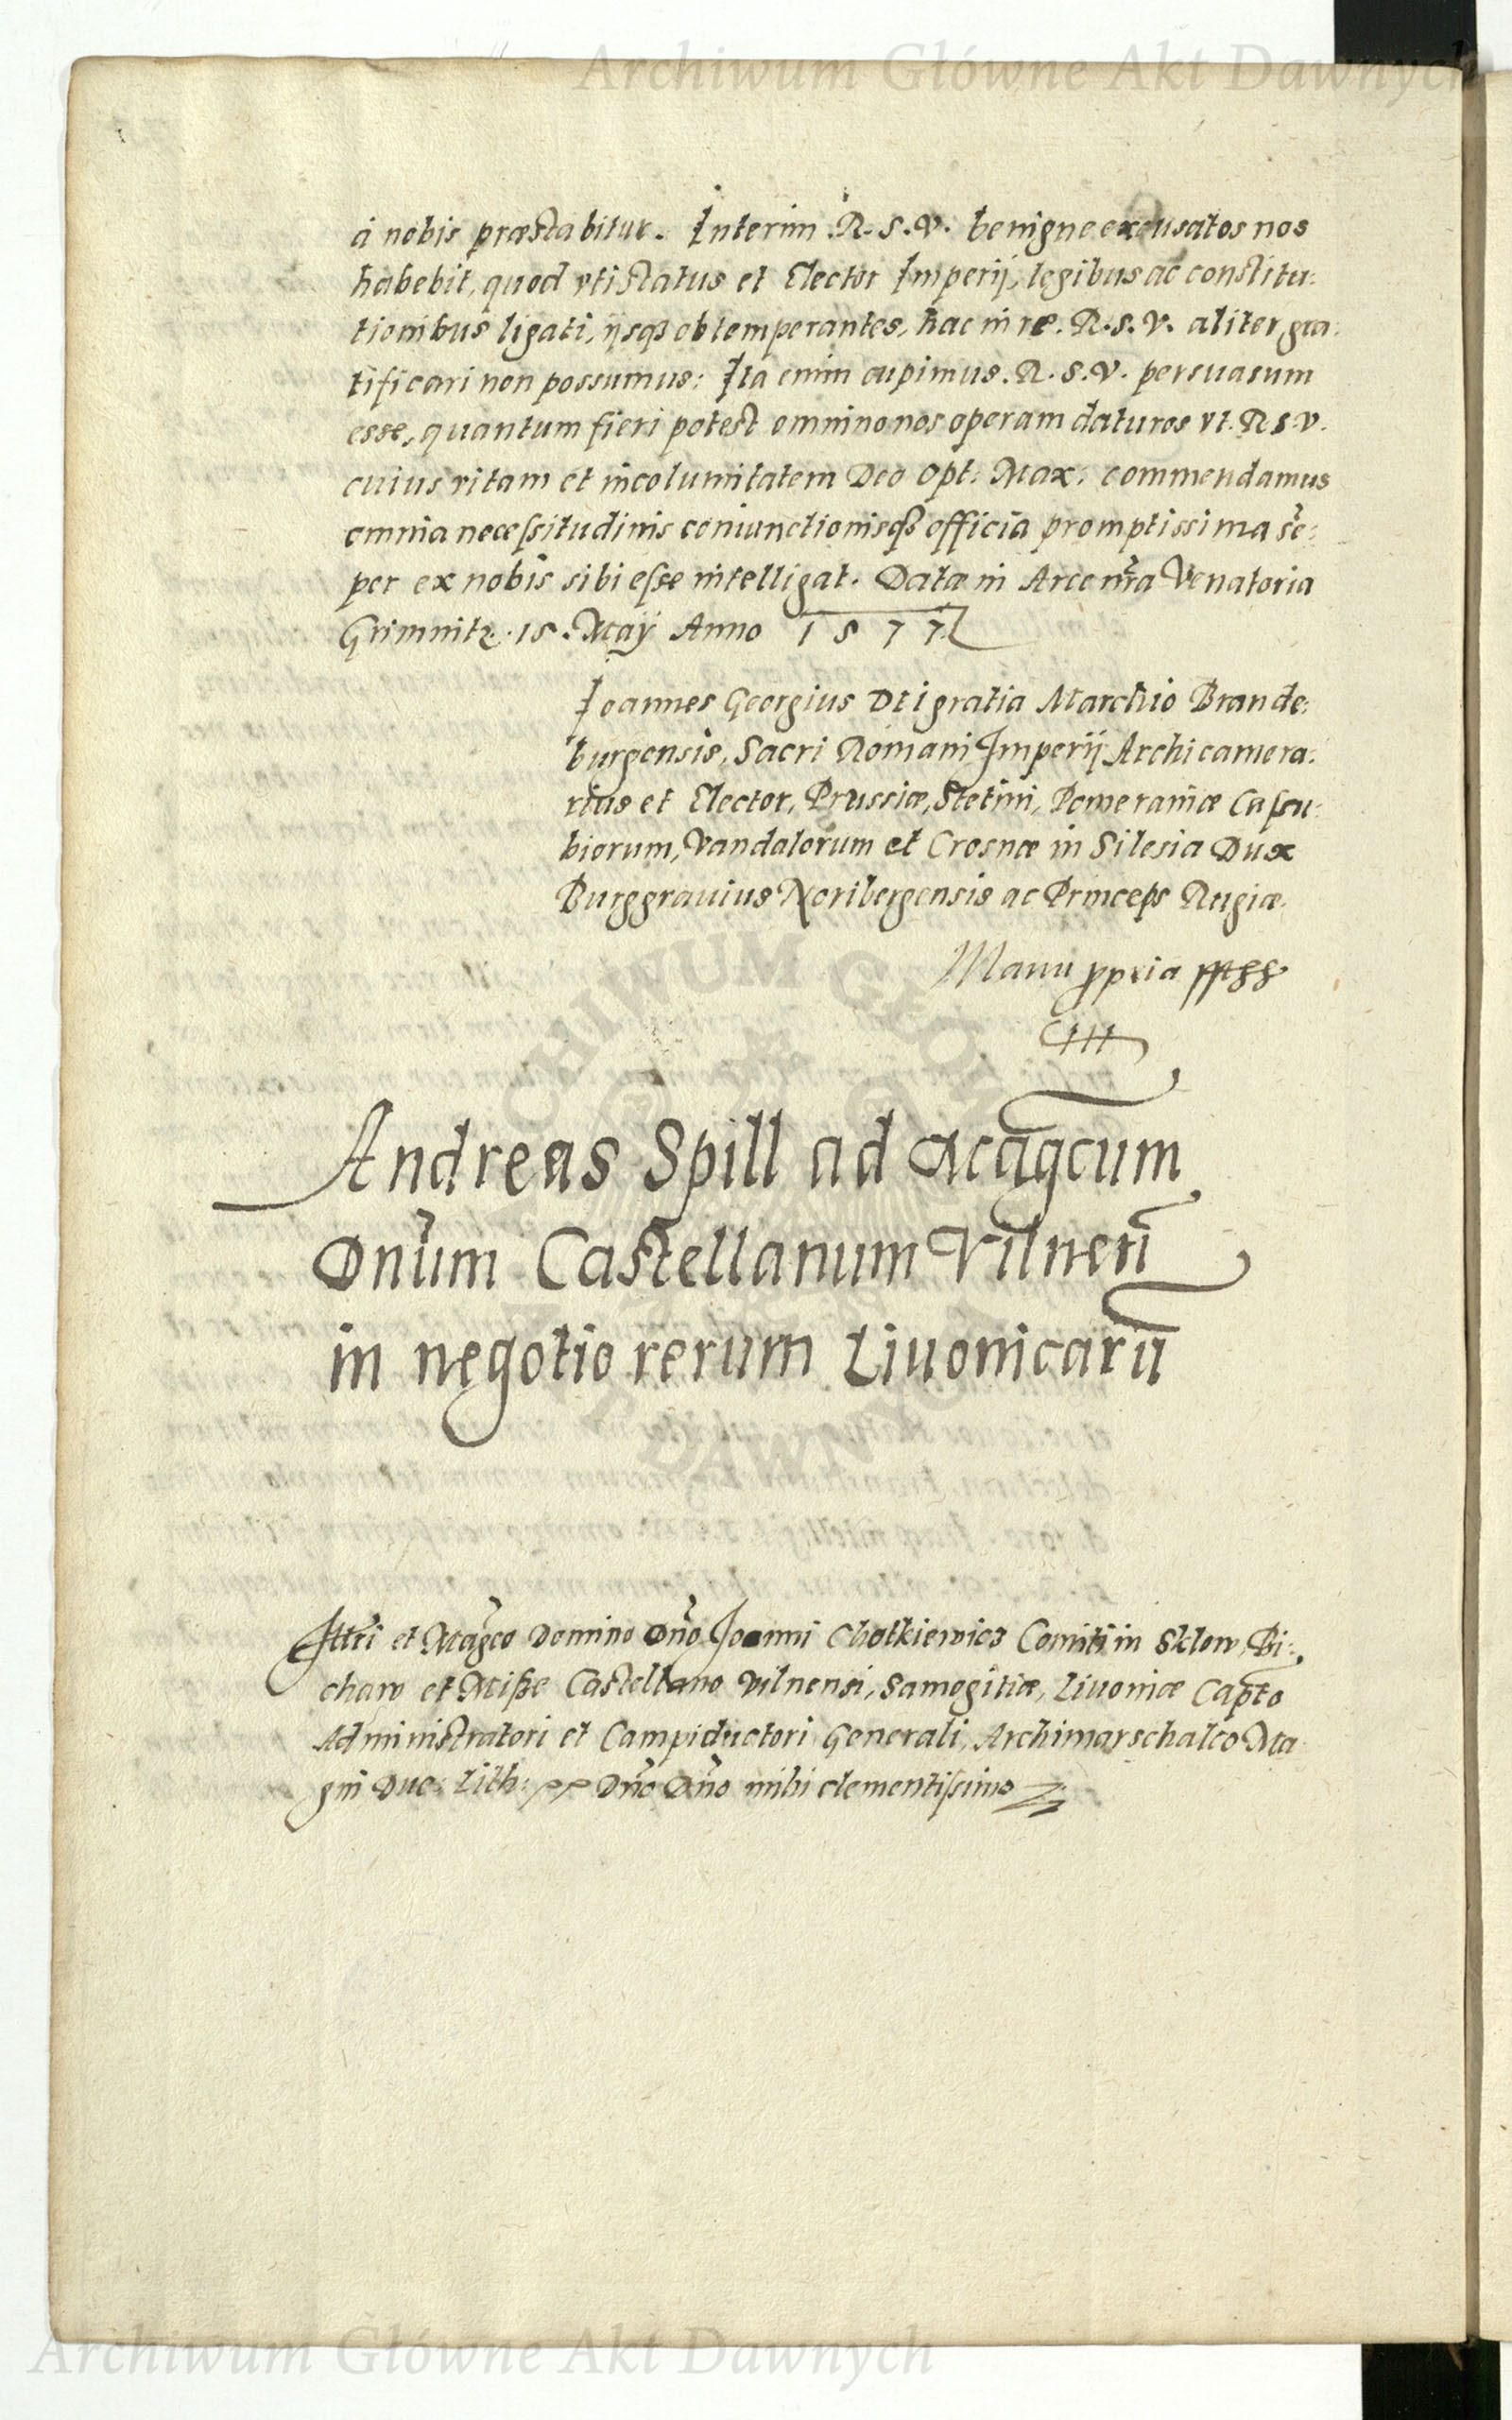 Archiwum Główne Akt Dawnych
á nobis præstabitur. Interim .R. S. V. benigne excusatos nos
habebit, quod vti status et Elector Imperij, legibus ac constitu:
tionibus ligati, ijsqȝ obtemperantes, hac in re .R. S. V. aliter gra:
tificari non possumus: Ita enim cupimus .R. S. V. persuasum
esse, quantum fieri potest omnino nos operam daturos vt .R S V.
cuius vitam et incolumitatem Deo Opt: Max: commendamus
omnia necessitudinis coniunctionisqȝ officia promptissima sẽ:
per ex nobis sibi esse intelligat. Datæ in Arce nr̃a Venatoria
Grimnitz .15. Maÿ Anno 1577
Joannes Georgius Dei gratia Marchio Brande:
burgensis, Sacri Romani Imperij Archicamera:
rius et Elector, Prussiæ, Stetini, Pomeraniæ Casu:
biorum, Vandalorum et Crosnæ in Silesia Dux
Burggrauius Noribergensis ac Princeps Rugiæ.
Manu ppria
ARCHIWUM GŁÓWNE AKT DAWNYCH
Andreas Spill ad Magcum
Dnũm Castellanum Vilneñ
in negotio rerum Liuonicarũ
Illri et Magco Domino Dño Joanni Chotkiewicz Comiti in Sklow, Bi:
chaw et Misse Castellano Vilnensi, Samogitiæ, Liuoniæ Capto
Administratori et Campiductori Generali, Archimarschalco Ma
gni Duc: Lith: Dño Dño mihi clementissimo
Archiwum Główne Akt Dawnych